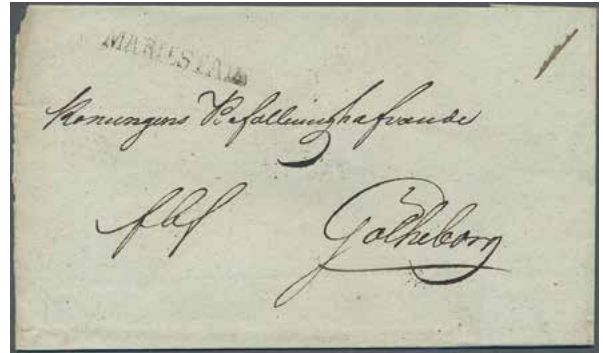 MARIESTAD
Konungens Befallningshafvande
fbf Götheborg